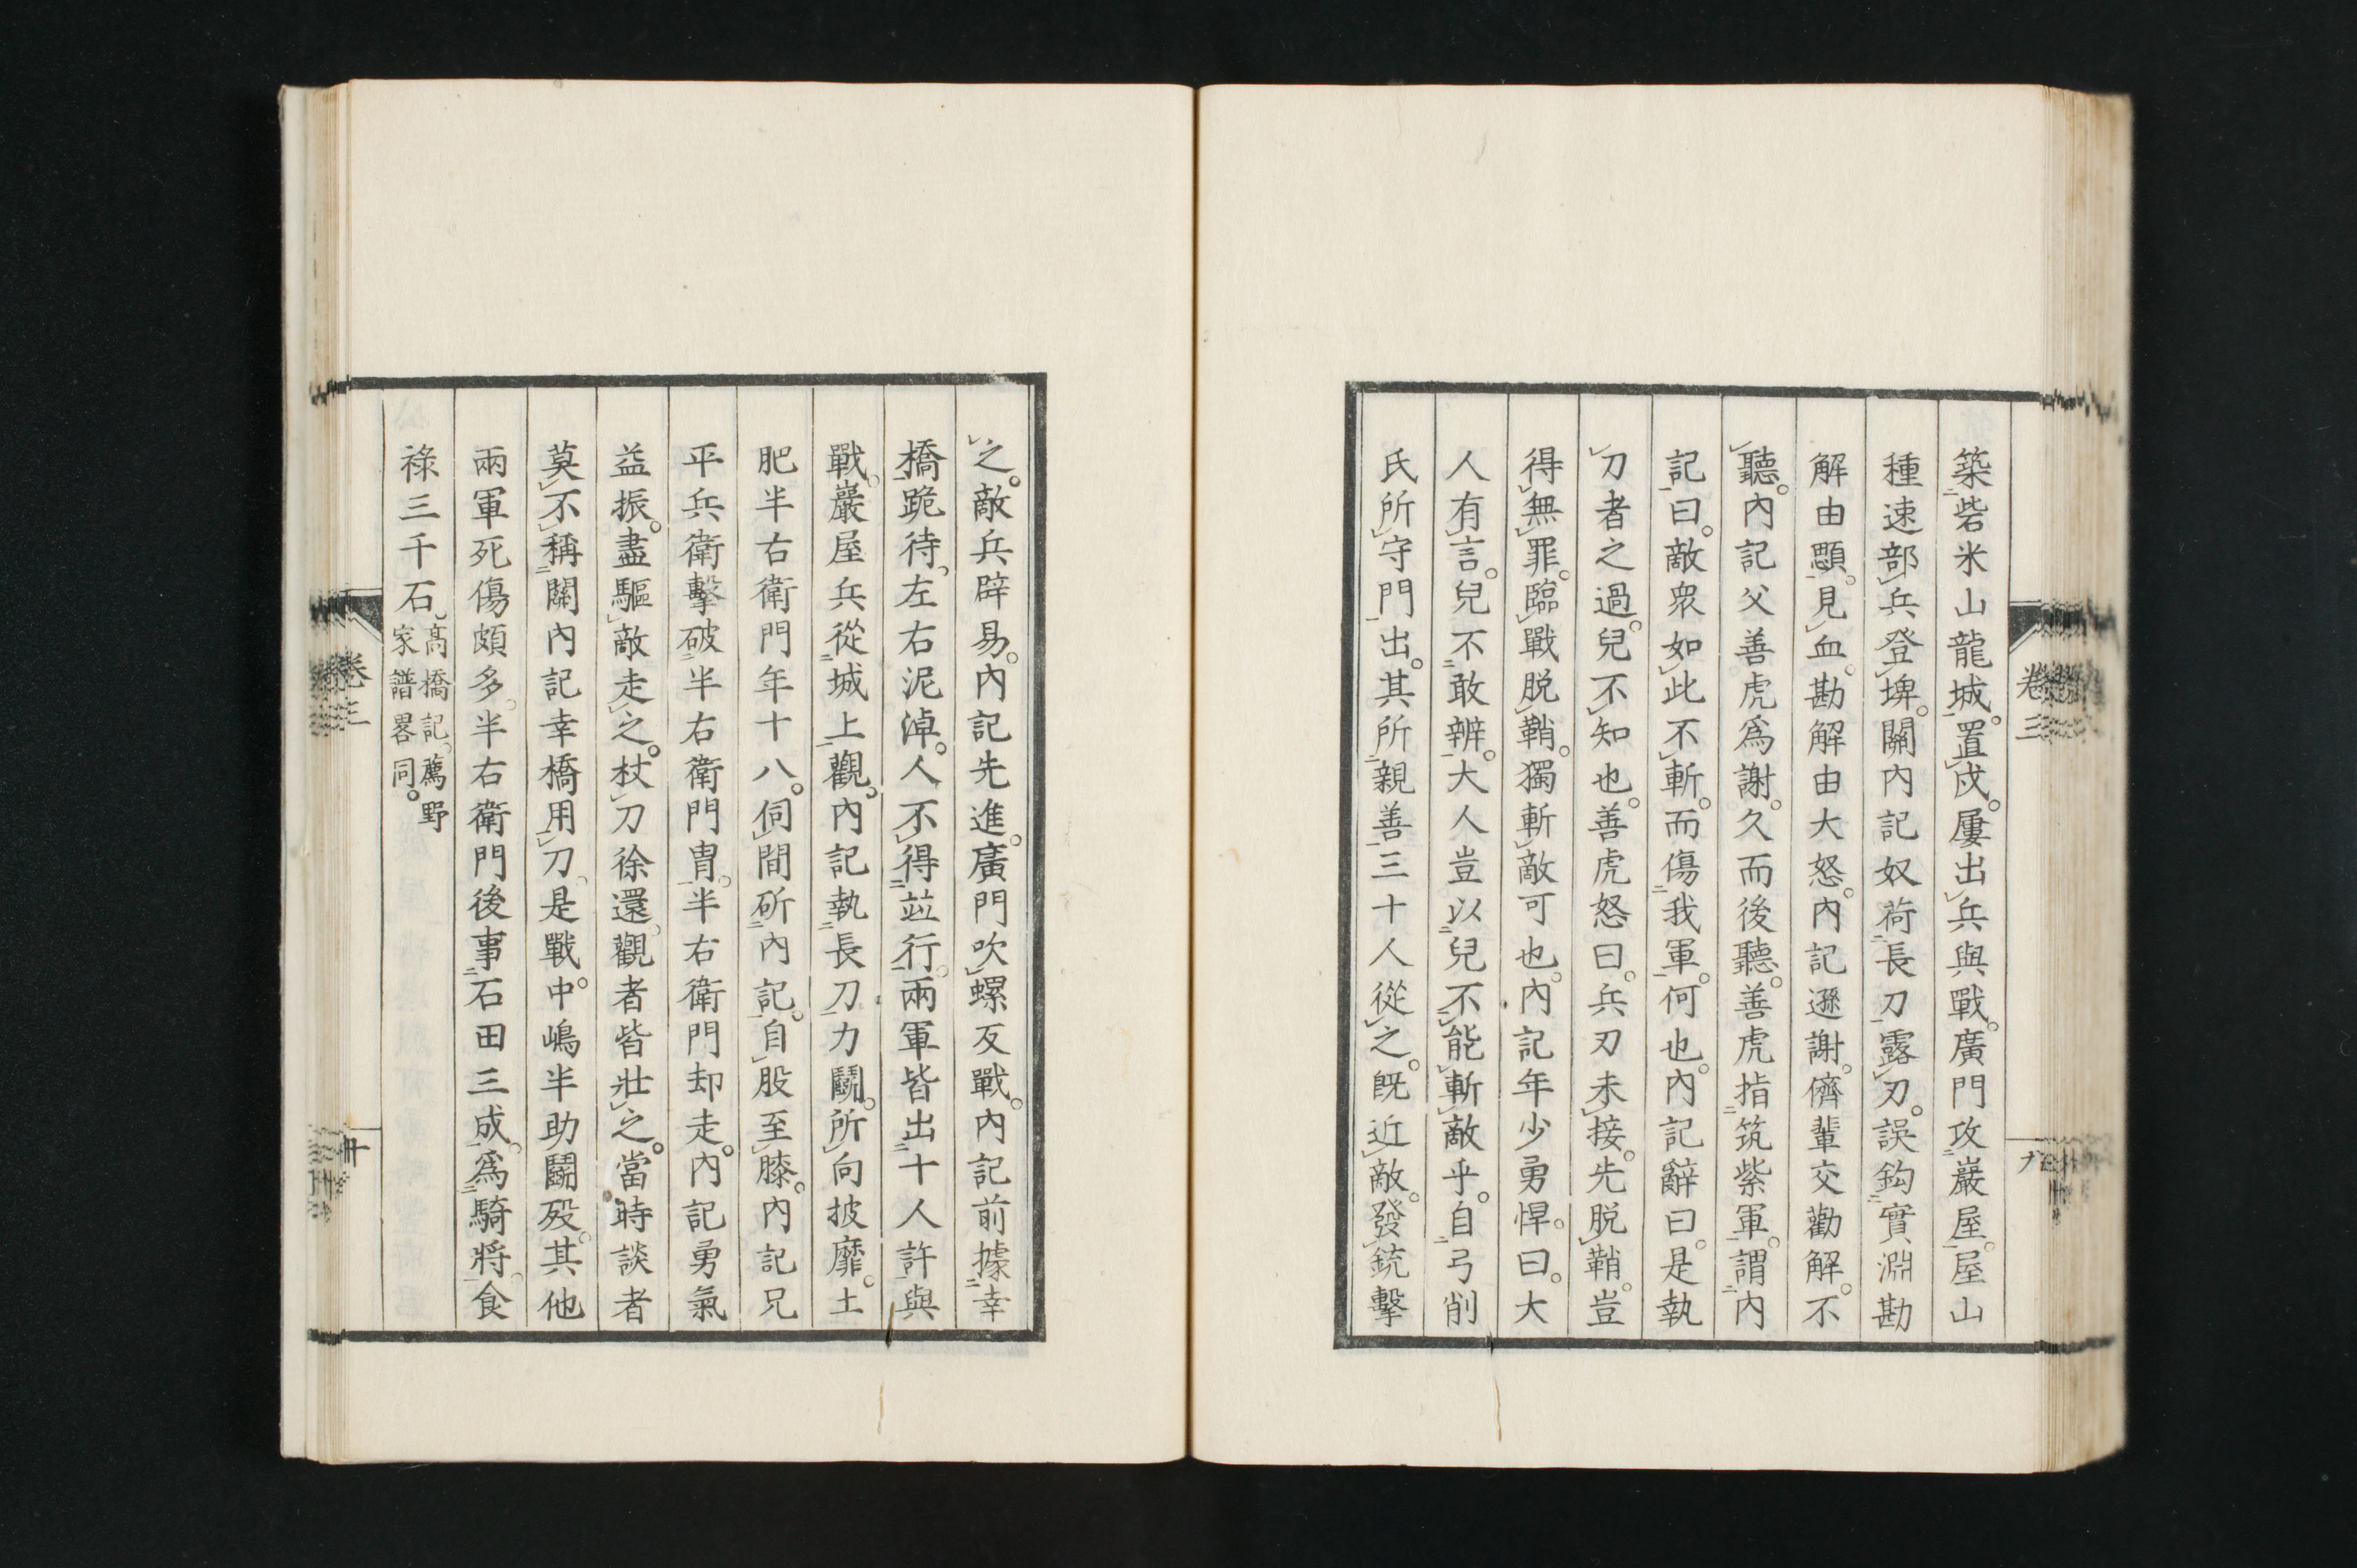 築砦米山龍城。置戍。屢出兵與戰。廣門攻巖屋。屋山
種速部兵登埤。關內記奴荷長刀露刃。誤鈎實淵勘
解由顋。見血。勘解由大怒。內記遜謝。儕輩交勸解。不
聽。內記父善虎爲謝。久而後聽。善虎指筑紫軍。謂內
記曰。敵衆如此不斬。而傷我軍。何也。內記辭曰。是執
刀者之過。兒不知也。善虎怒曰。兵刃未接。先脱鞘。豈
得無罪。臨戰脱鞘。獨斬敵可也。內記年少勇悍。曰。大
人有言。兒不敢辨。大人豈以兒不能斬敵乎。自弓削
氏所守門出。其所親善三十人從之。旣近敵。發銃擊
之。敵兵辟易。內記先進。廣門吹螺反戰。內記前據幸
橋跪待。左右泥淖。人不得並行。兩軍皆出十人許與
戰。巖屋兵從城上觀。內記執長刀力鬭。所向披靡。土
肥半右衛門年十八。伺間斫內記。自股至膝。內記兄
平兵衛擊破半右衛門冑。半右衛門却走。內記勇氣
益振。盡驅敵走之。杖刀徐還。觀者皆壯之。當時談者
莫不稱關內記幸橋用刀。是戰中。中嶋半助鬭歿。其他
兩軍死傷頗多。半右衛門後事石田三成。爲騎將。食
祿三千石。高橋記。薦野
家譜畧同。
卷三
卷三